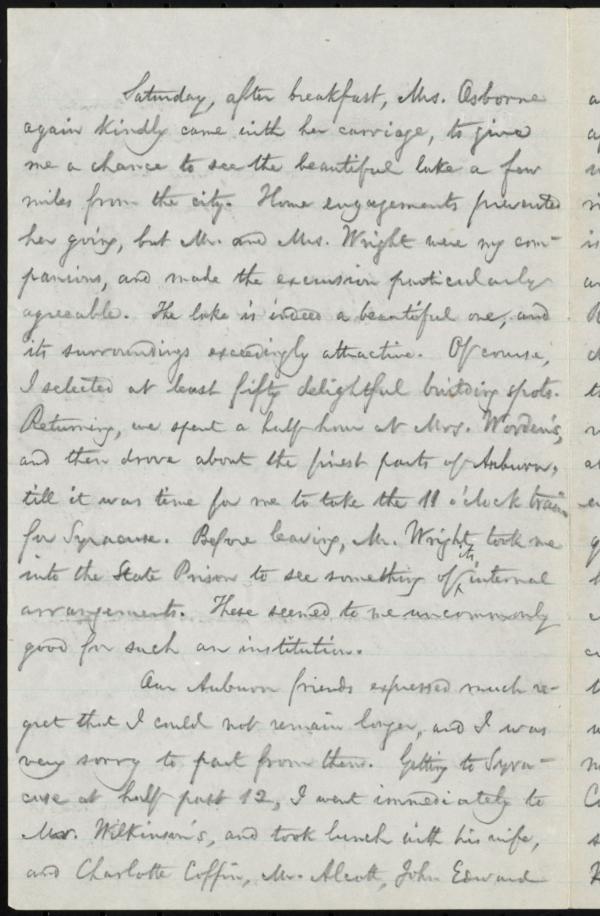 Saturday, after breakfast, Mrs. Osborne
again kindly came with her carriage, to give
me a chance to see the beautiful lake a few
miles from the city. Home engagements prevented
her going, but Mr. and Mrs. Wright were my com-
panions, and made the excursion particularly
agreeable. The lake is indeed a beautiful one, and
its surroundings exceedingly attractive. Of course,
I selected at least fifty delightful building spots.
Returning, we spent a half hour at Mrs. Worden's,
and then drove about the finest parts of Auburn,
till it was time for me to take the 11 o'clock train
for Syracuse. Before leaving, Mr. Wright took me
into the State Prison to see something of its internal
arrangements. These seemed to me uncommonly
good for such an institution.
Our Auburn friends expressed much re-
gret that I could not remain longer, and I was
very sorry to part from them. Getting to Syra-
cuse at half past 12, I went immediately to
Mr. Wilkinson's, and took lunch with his wife,
and Charlotte Coffin, Mr. Alcott, John Edward